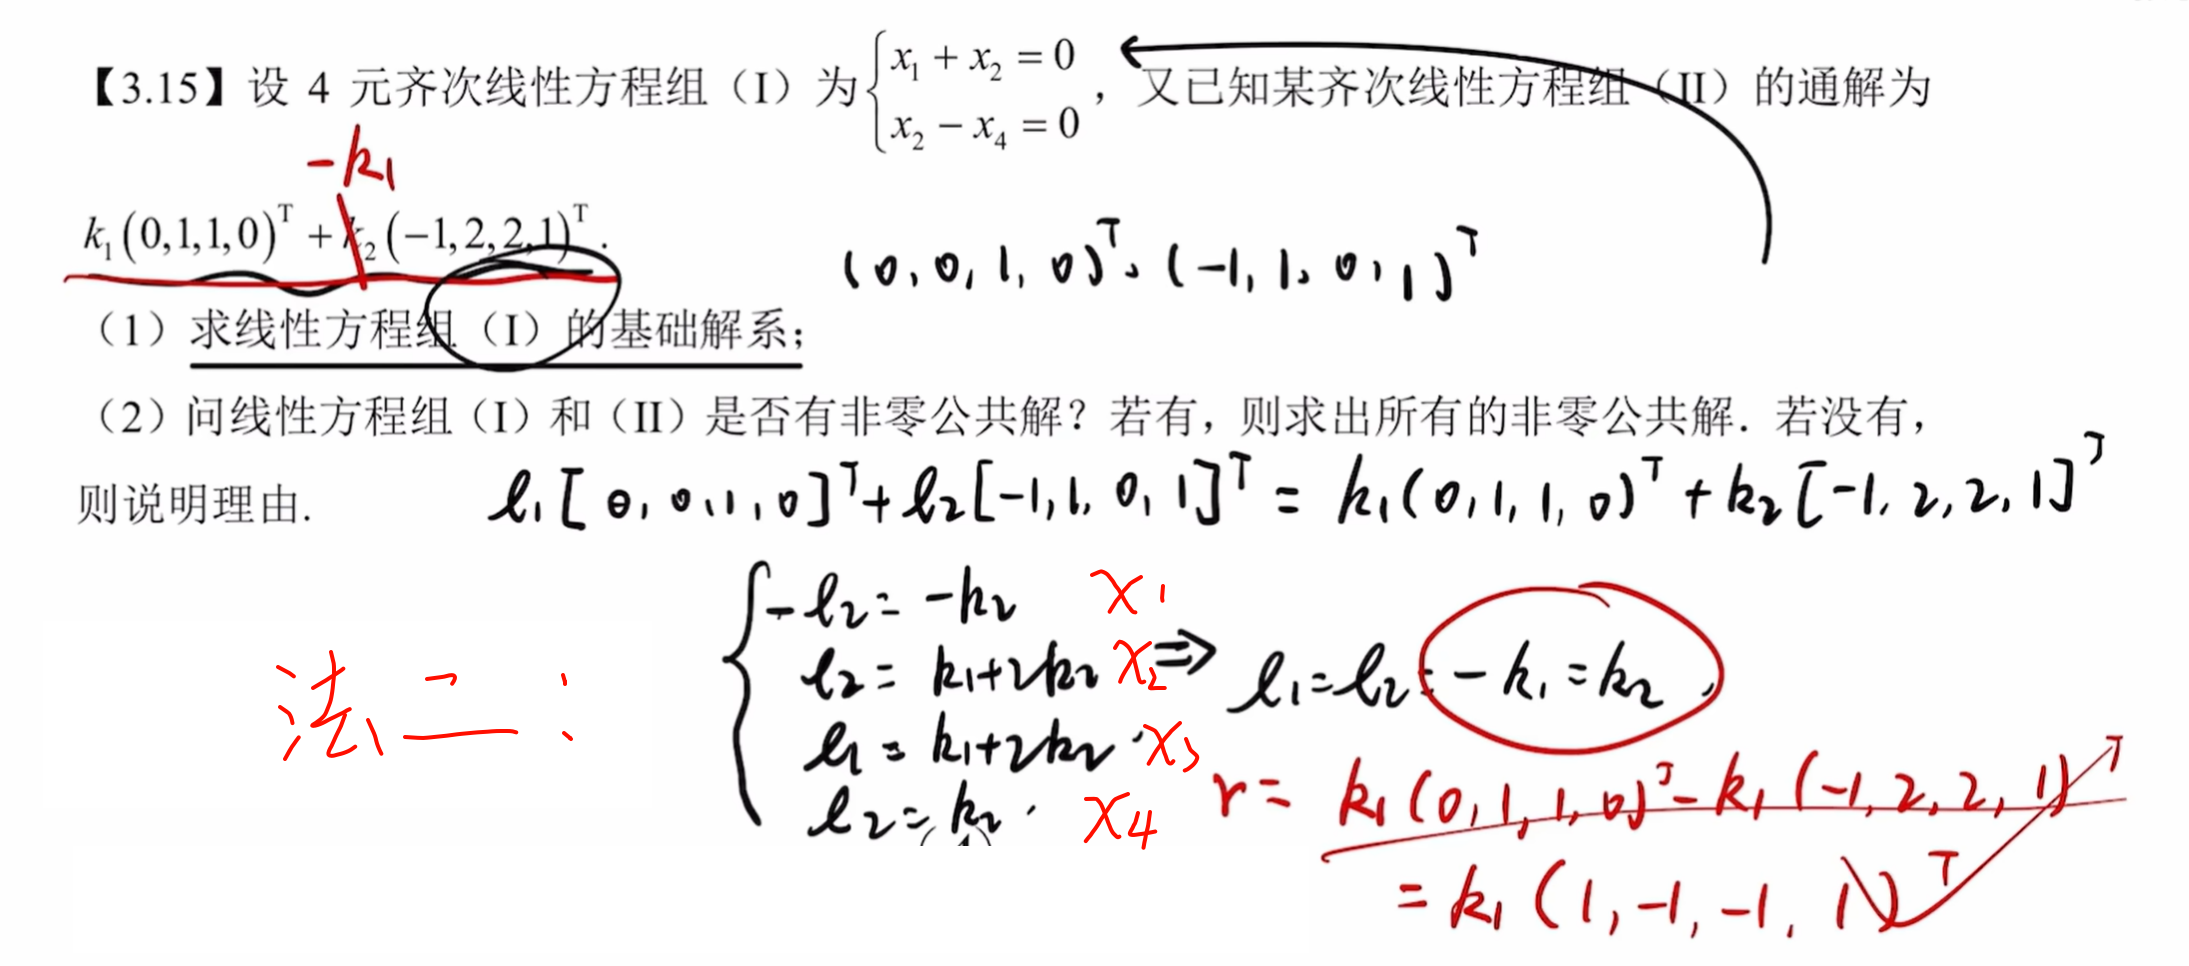 【3.15】设 4 元齐次线性方程组（I）为 { x₁ + x₂ = 0 , x₂ − x₄ = 0 ，又已知某齐次线性方程组（II）的通解为
-k₁
k₁(0,1,1,0)ᵀ + k₂(−1,2,2,1)ᵀ.
(0, 0, 1, 0)ᵀ、(-1, 1, 0, 1)ᵀ
（1）求线性方程组（I）的基础解系；
（2）问线性方程组（I）和（II）是否有非零公共解？若有，则求出所有的非零公共解．若没有，
则说明理由.
l₁[0, 0, 1, 0]ᵀ + l₂[-1, 1, 0, 1]ᵀ = k₁(0, 1, 1, 0)ᵀ + k₂[-1, 2, 2, 1]ᵀ
法二：
-l₂ = -k₂ x₁
l₂ = k₁+2k₂ x₂ ⇒ l₁ = l₂ = -k₁ = k₂
l₁ = k₁+2k₂ x₃
l₂ = k₂ x₄
r = k₁(0, 1, 1, 0)ᵀ - k₁(-1, 2, 2, 1)ᵀ
= k₁(1, -1, -1, 1)ᵀ